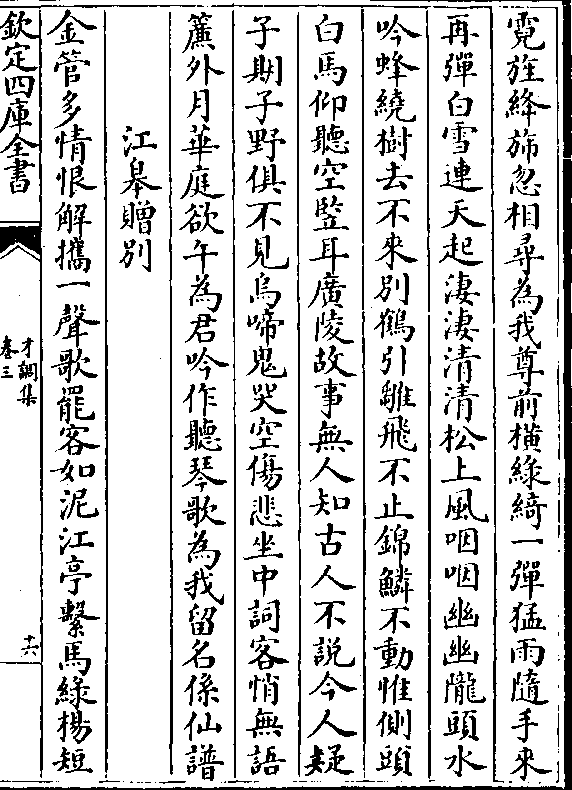 霓旌絳斾忽相尋為我尊前横緑綺一彈猛雨隨手來
再彈白雪連天起淒淒清清松上風咽咽幽幽隴頭水
吟蜂繞樹去不來别鶴引雛飛不止錦鱗不動惟側頭
白馬仰聽空竪耳廣陵故事無人知古人不說今人疑
子期子野俱不見烏啼鬼哭空傷悲坐中詞客悄無語
簾外月華庭欲午為君吟作聽琴歌為我留名係仙譜
江皋贈别
金管多情恨解攜一聲歌罷客如泥江亭繫馬緑楊短
欽定四庫全書
才調集
卷三
十六